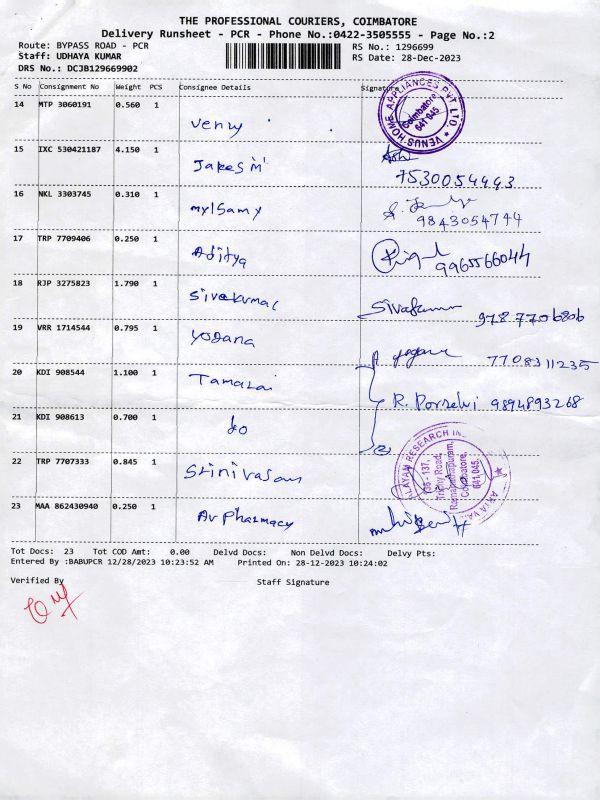 THE PROFESSIONAL COURIERS, COIMBATORE
Delivery Runsheet - PCR - Phone No.:0422-3505555 - Page No.:2
Route: BYPASS ROAD - PCR
RS No.: 1296699
Staff: UDHAYA KUMAR
RS Date: 28-Dec-2023
DRS No.: DCJB129669902
S No Consignment No Weight PCS Consignee Details Signature
14 MTP 3060191 0.560 1
VENUS HOME APPLIANCES PVT LTD
Coimbatore
641 045
15 IXC 530421187 4.150 1
James M
7530054493
16 NKL 3303745 0.310 1
Mylsamy
9843054744
17 TRP 7709406 0.250 1
Aditya
9965566044
18 RJP 3275823 1.790 1
Sivakumar Sivakumar 9787706806
19 VRR 1714544 0.795 1
Yogana
7708311235
20 KDI 908544 1.100 1
Tamarai
R. Porselvi 9894893268
21 KDI 908613 0.700 1
do
22 TRP 7707333 0.845 1
Srinivasan
136 - 137,
Trichy Road,
Ramanathapuram,
Coimbatore,
641 045.
23 MAA 862430940 0.250 1
AV Pharmacy
Tot Docs: 23 Tot COD Amt: 0.00 Delvd Docs: Non Delvd Docs: Delvy Pts:
Entered By :BABUPCR 12/28/2023 10:23:52 AM Printed On: 28-12-2023 10:24:02
Verified By Staff Signature